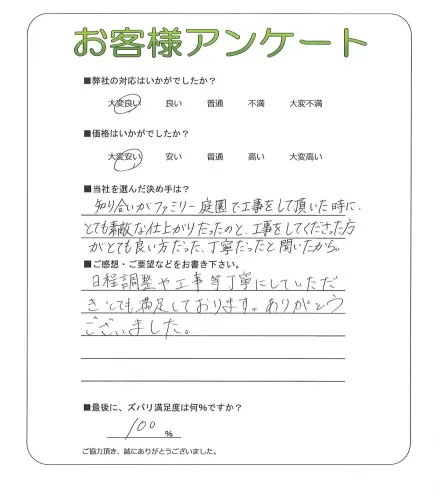 お客様アンケート
■弊社の対応はいかがでしたか?
大変良い 良い 普通 不満 大変不満
■価格はいかがでしたか?
大変安い 安い 普通 高い 大変高い
■当社を選んだ決め手は?
知り合いがファミリー庭園で工事をして頂いた時に、
とても素敵な仕上がりだったのと、工事をしてくださった方
がとても良い方だった、丁寧だったと聞いたから。
■ご感想・ご要望などをお書き下さい。
日程調整や工事等丁寧にしていただ
きとても満足しております。ありがとう
ございました。
■最後に、ズバリ満足度は何%ですか?
100 %
ご協力頂き、誠にありがとうございました。